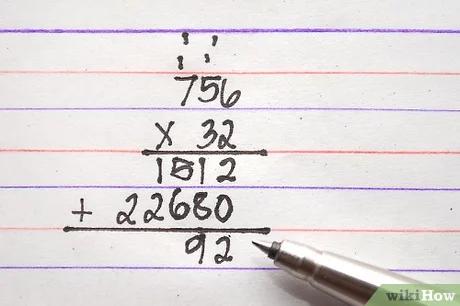 1 1
1 1
756
x 32
1512
+ 22680
92
wikiHow